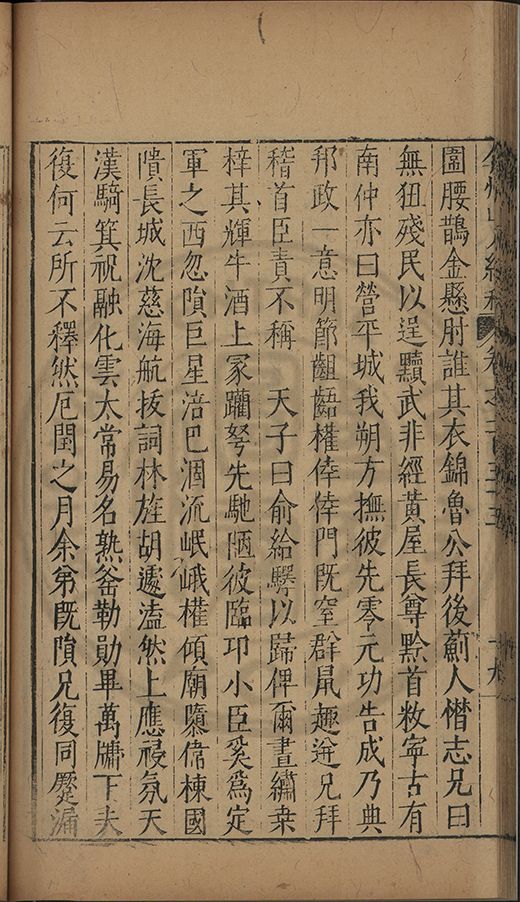 弇州山人續稿 卷之一百五十五 十九
圍腰鵲金懸肘誰其衣錦魯公拜後薊人憯志兄曰
無狃殘民以逞黷武非經黃屋長尊黔首敉寧古有
南仲亦曰營平城我朔方撫彼先零元功告成乃典
邦政一意明節齟齬權倖倖門既窒群鼠趣迸兄拜
稽首臣責不稱 天子曰俞給驛以歸俾爾晝繡桑
梓其輝牛酒上冢躝弩先馳陋彼臨卭小臣奚為定
軍之西忽隕巨星涪巴涸流岷峨權傾廟隳偉棟國
隤長城沈慈海航拔詞林旌胡遽溘然上應祲氛天
漢騎箕祝融化雲太常易名熟釜勒勛畢萬牖下夫
復何云所不釋然厄閏之月余弟既隕兄復同蹷漏